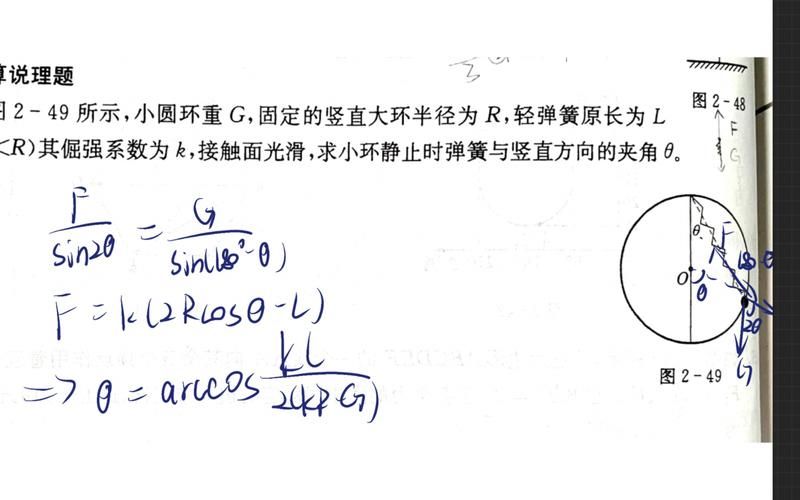 算说理题
图 2-49 所示,小圆环重 G,固定的竖直大环半径为 R,轻弹簧原长为 L
<R)其倔强系数为 k,接触面光滑,求小环静止时弹簧与竖直方向的夹角 θ。
图 2-48
F
G
F/sin2θ = G/sin(180°-θ)
F = k(2Rcosθ-L)
=> θ = arccos kL/2(kR-G)
θ
F
180-θ
O
θ
2θ
G
图 2-49